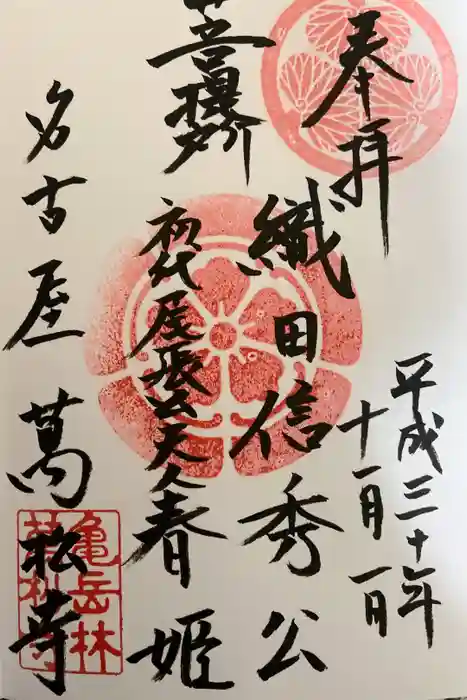 奉拝
平成三十年
十一月一日
織田信秀公
菩提所
初代尾張公夫人春姫
名古屋 萬松寺
亀岳林
萬松寺